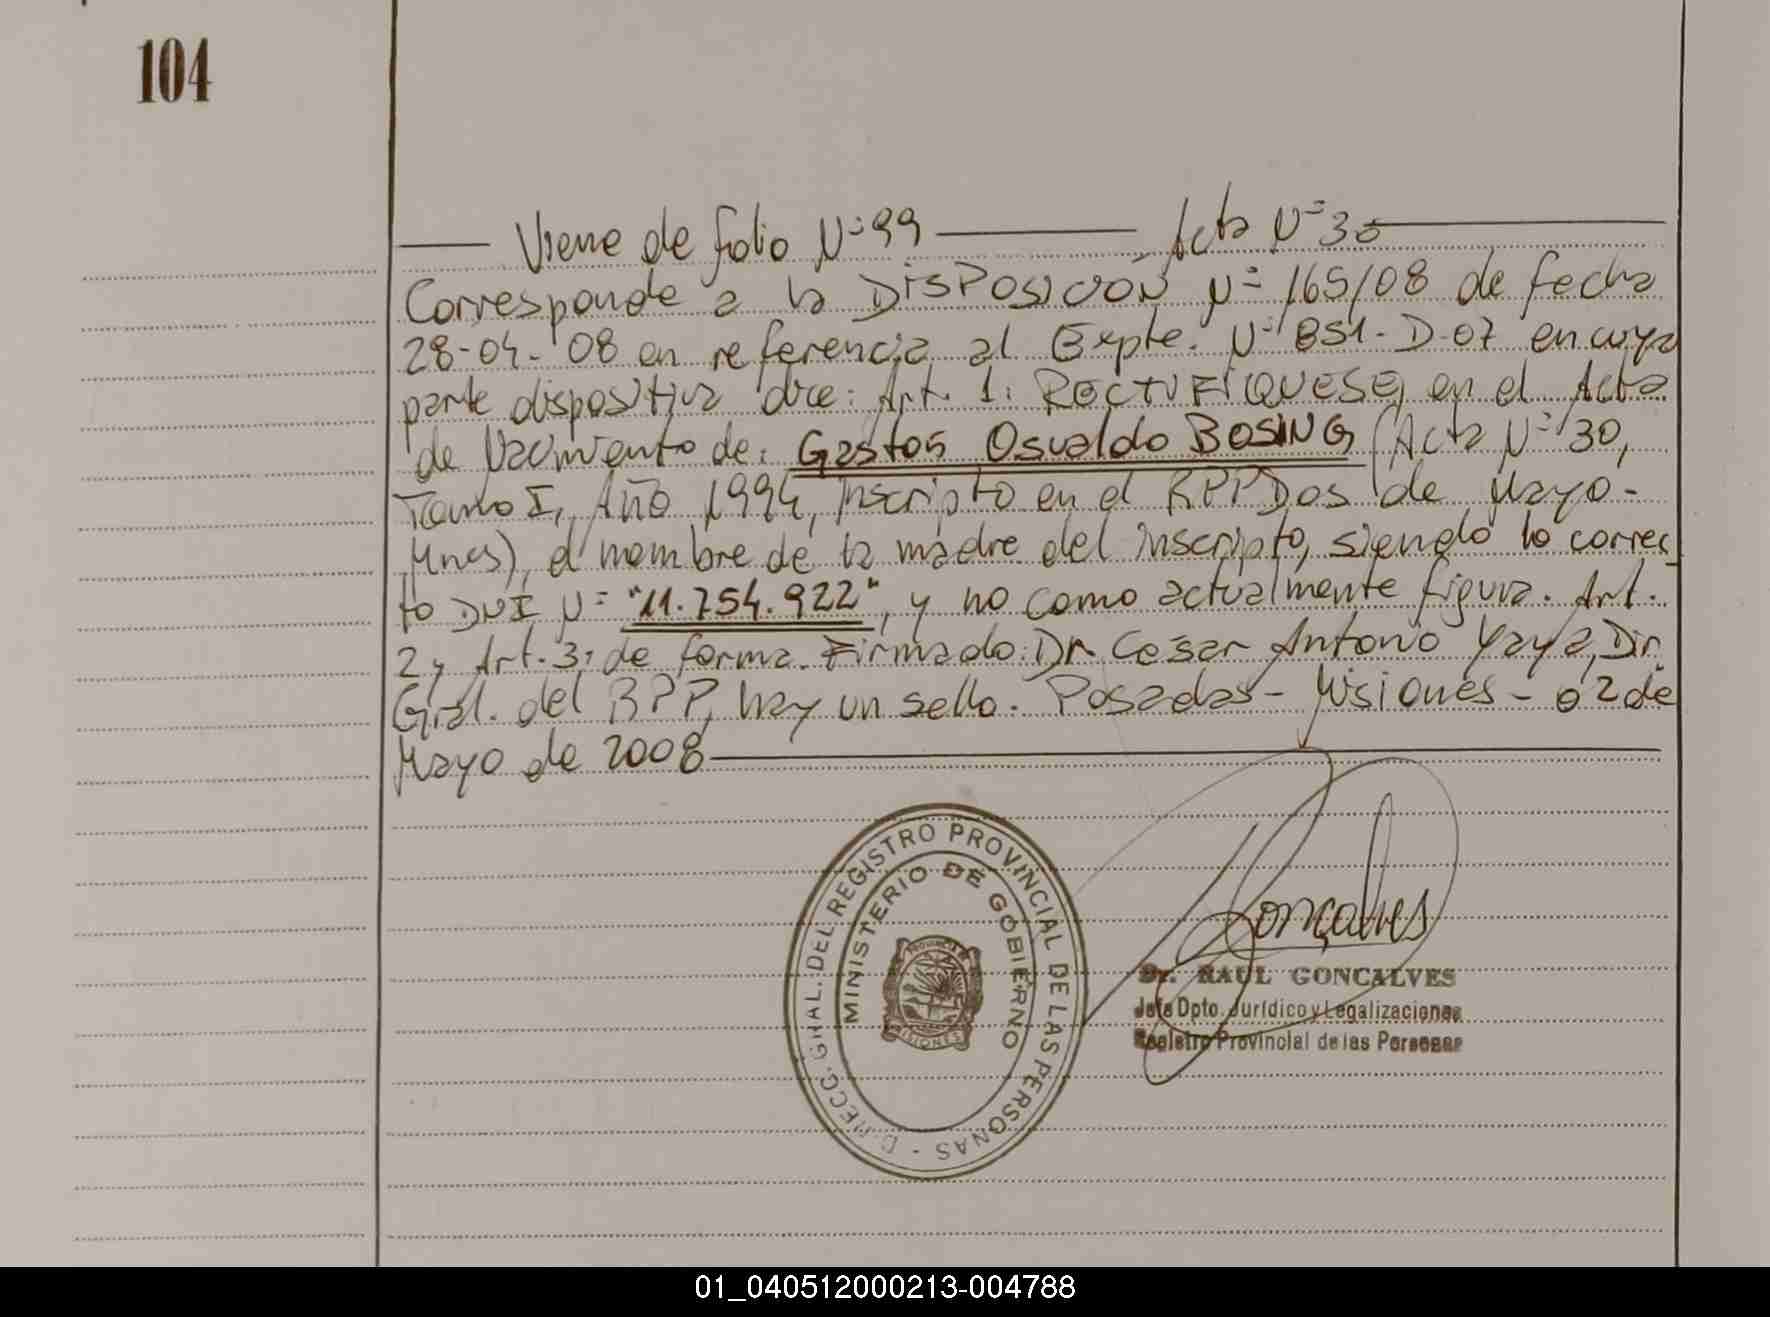 104
Viene de folio Nº 99 Acta Nº 30
Corresponde a la DISPOSICIÓN Nº 165/08 de fecha
28-04-08 en referencia al Expte. Nº 851-D-07 en cuya
parte dispositiva dice: Art. 1: RECTIFIQUESE, en el Acta
de Nacimiento de: Gaston Osvaldo BOSING (Acta Nº 30,
Tomo I, Año 1994, inscripto en el RPPDos de Mayo-
Mnes), el nombre de la madre del inscripto, siendo lo correc
to DNI Nº "11.754.922", y no como actualmente figura. Art.
2 y Art. 3: de forma. Firmado: Dr. Cesar Antonio Yaya, Dir.
Gral. del RPP, hay un sello. Posadas - Misiones - 02 de
Mayo de 2008
DIRECC. GRAL. DEL REGISTRO PROVINCIAL DE LAS PERSONAS -
MINISTERIO DE GOBIERNO
PROVINCIA DE
MISIONES
Gonçalves
Dr. RAUL GONCALVES
Jefe Dpto. Jurídico y Legalizaciones
Registro Provincial de las Personas
01_040512000213-004788